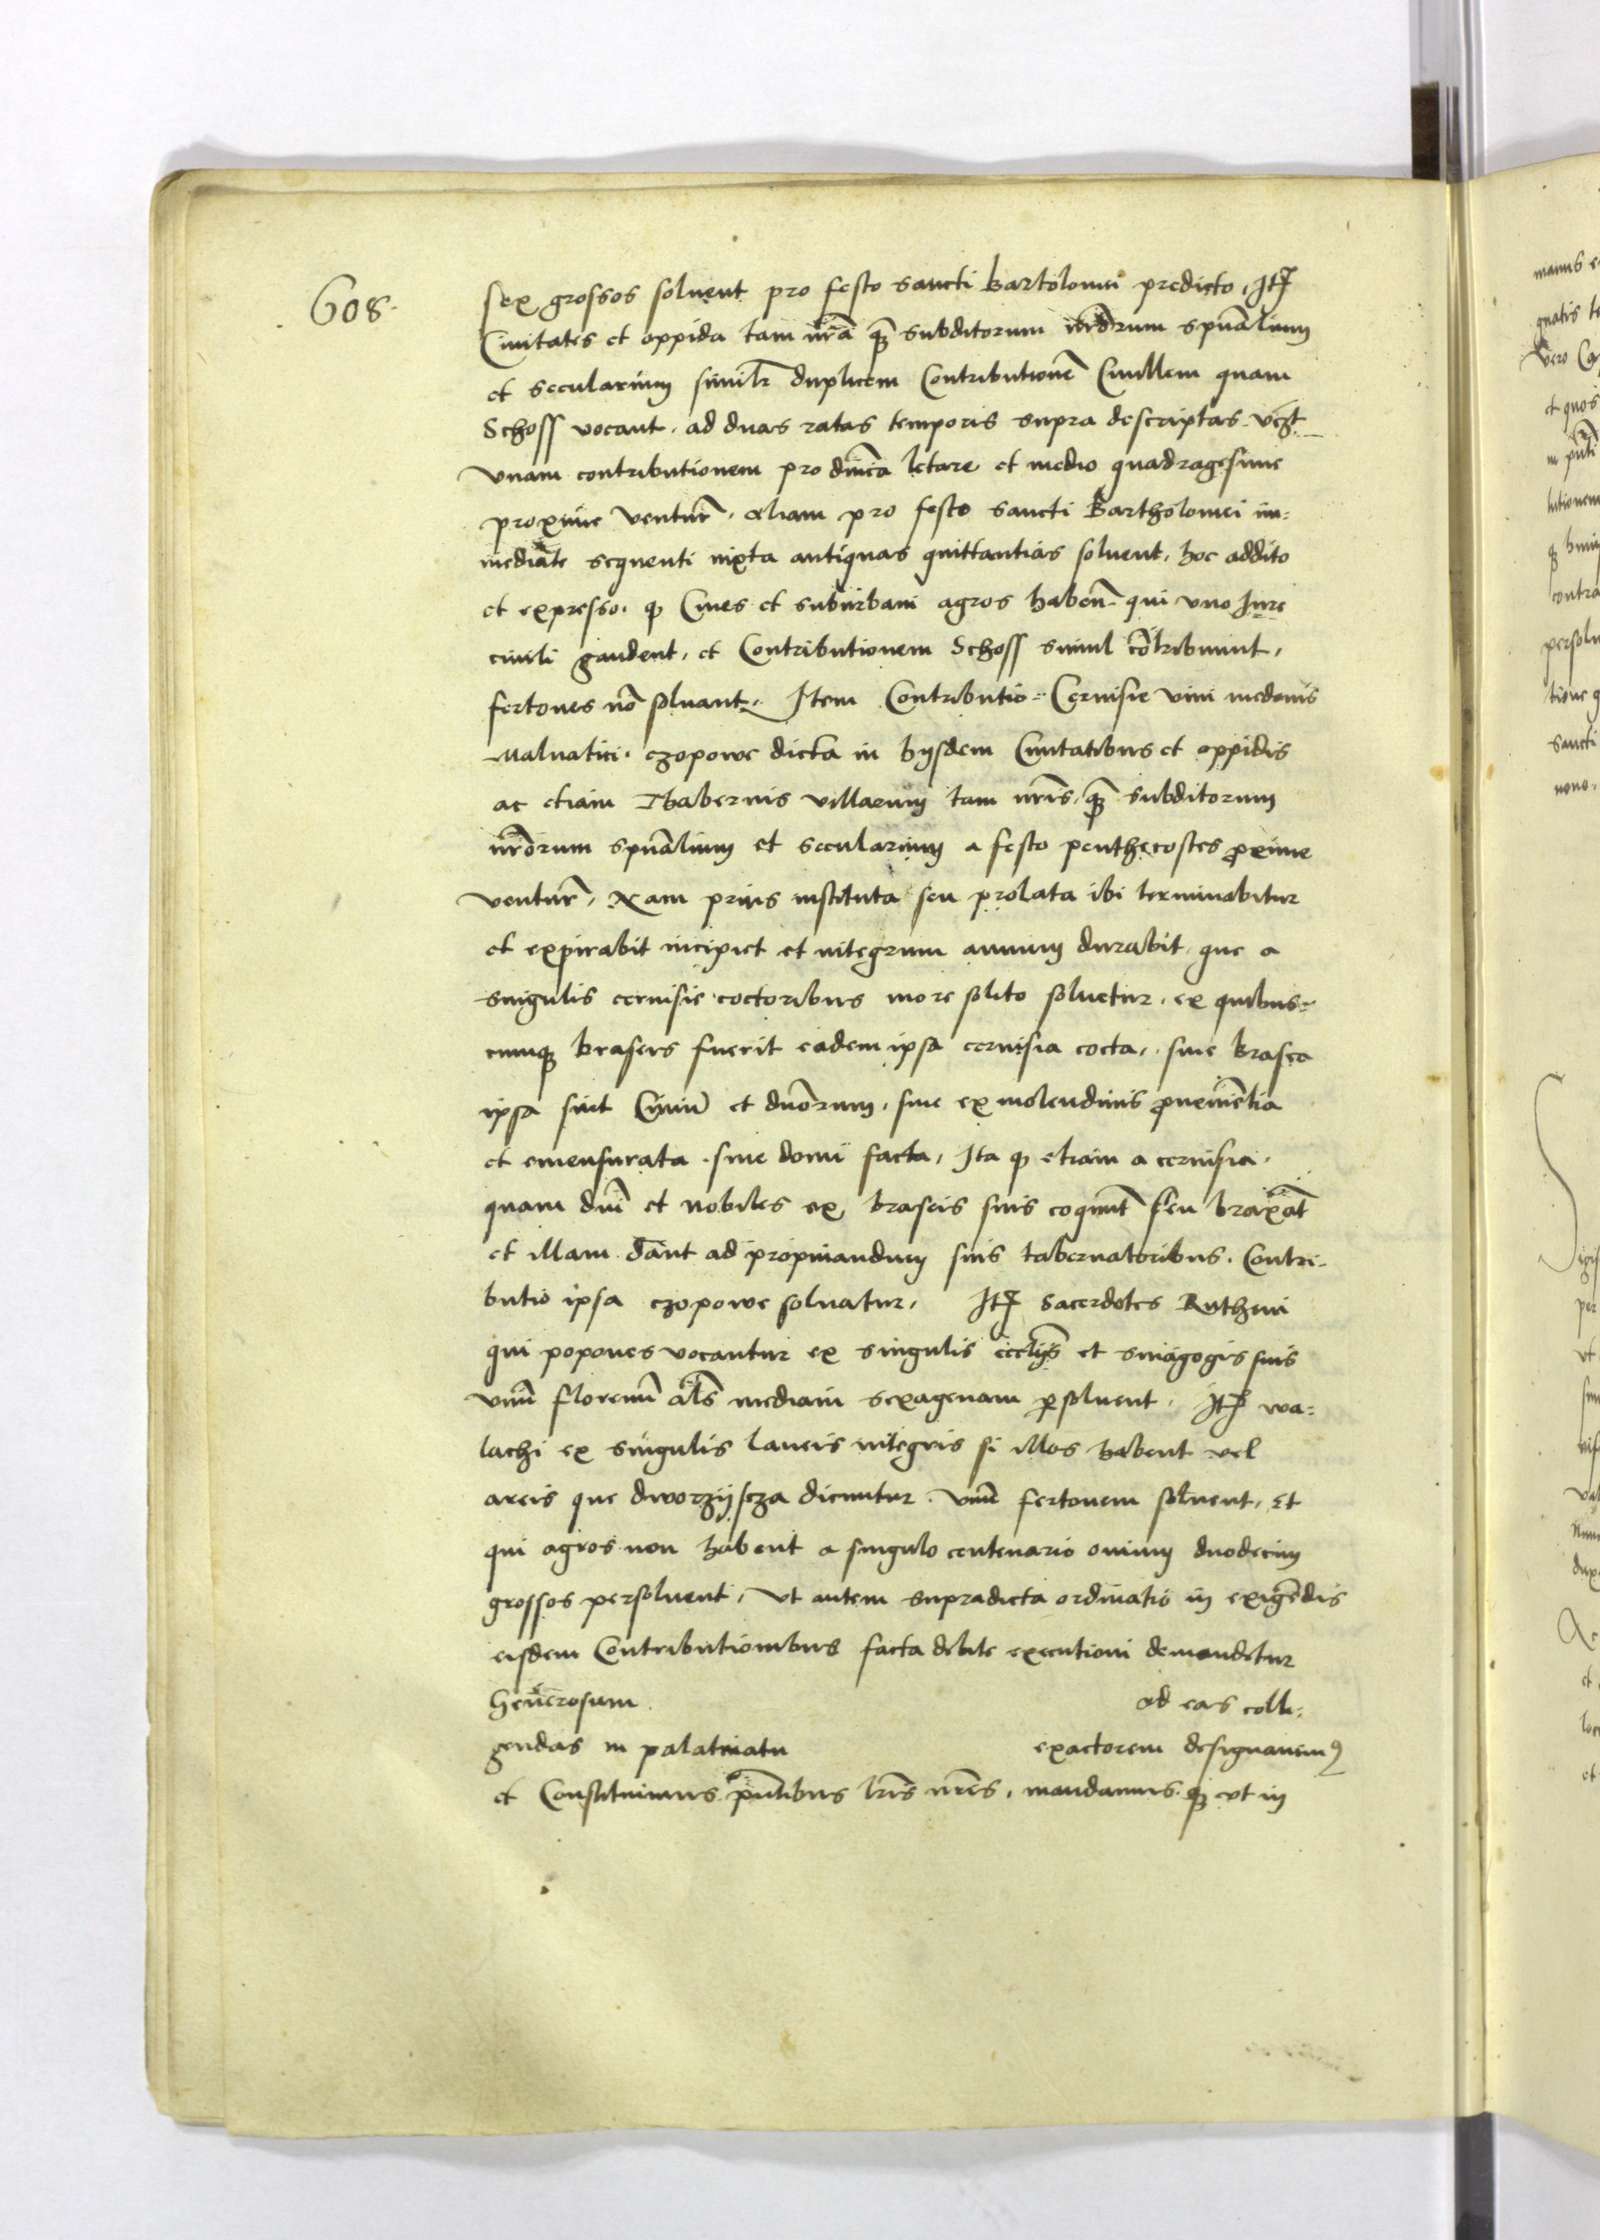 608.
sex grossos solvent pro festo sancti Bartolomei predicto, Itẽ
Civitates et oppida tam nrã q̃ȝ subditorum nrõrum spũalium
et secularium similr̃ duplicem Contributionẽ Civillem quam
Schoss vocant. ad duas ratas temporis supra descriptas. vcȝt
vnam contributionem pro dñica letare et medio quadragesime
proxime ventur̃. aliam pro festo sancti Bartholomei im=
mediate sequenti iuxta antiquas quittantias solvent. hoc addito
et expresso. qȝ Cives et suburbani agros haben̄. qui vno Jure
civili gaudent, et Contributionem Schoss simul cõtribuunt,
fertones nõ solvant. Item Contributio Cervisie vini medonis
Malvatici. czopowe dicta in hijsdem Civitatibus et oppidis
ac etiam Thabernis villarum tam nrĩs, q̃ȝ subditorum
nrõrum spũalium et secularium a festo penthecostes proxime
ventur̃, Nam prius instituta seu prolata ibi terminabitur
et expirabit incipiet et integrum annum durabit. que a
singulis cervisie coctoribus more solito solvetur. ex quibus=
cunqȝ braseis fuerit eadem ipsa cervisia cocta. sive Brasea
ipsa sint Civiũ et dnõrum. sive ex molendinis proveniẽtia
et emensurata. sive domi facta, Ita qȝ etiam a cervisia.
quam dnĩ et nobiles ex braseis suis coquunt seu braxãt
et illam dant ad propinandum suis tabernatoribus. Contri-
butio ipsa czopowe solvatur, Itẽ Sacerdotes Rutheni
qui popones vocantur ex singulis ecclijs et sinagogis suis
vnũ florenũ als̃ mediam sexagenam psolvent. Itẽ wa=
lachi ex singulis laneis integris si illos habent vel
areis que dworzijscza dicuntur. vnũ fertonem solvent, Et
qui agros non habent a singulo centenario ovium duodecim
grossos persolvent, Vt autem supradicta ordinatio in exigẽdis
eisdem Contributionibus facta debite executioni demandetur
Generosum ad eas colli=
gendas in palatinatu exactorem designavimus
et Constituimus pñtibus lrĩs nrĩs, mandamus qȝ vt in